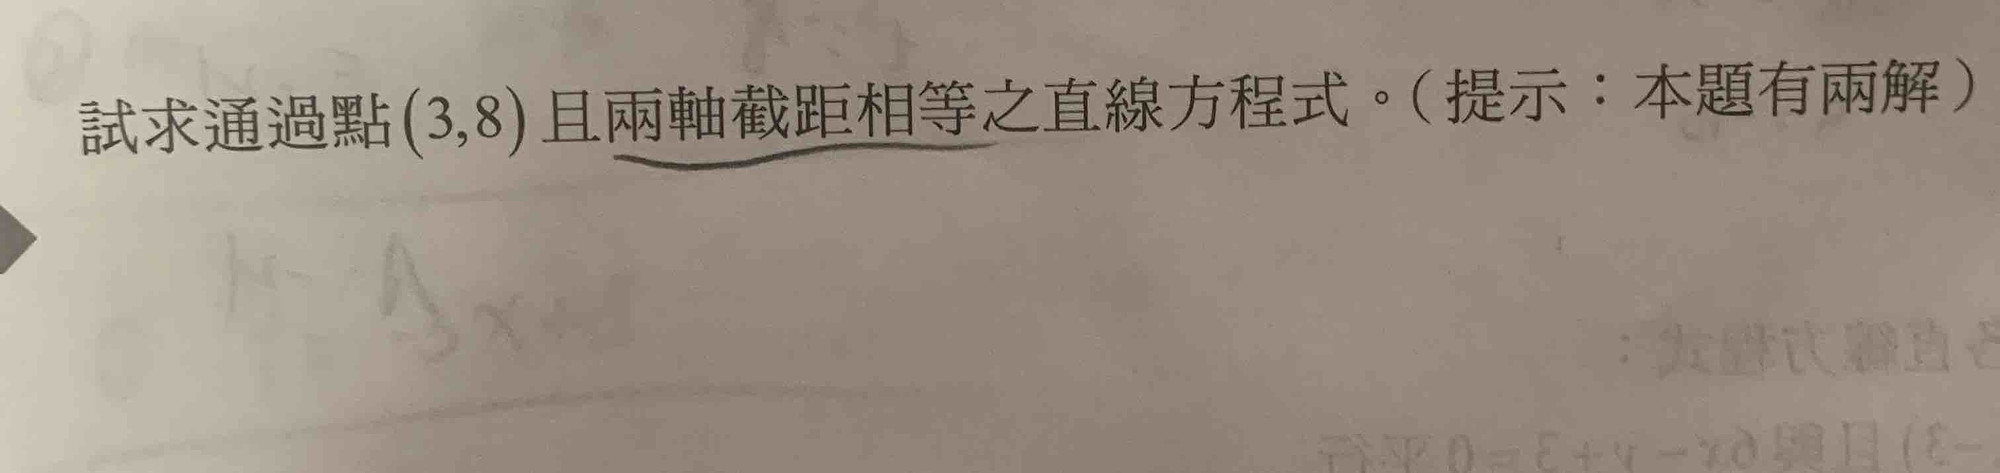 試求通過點(3,8)且兩軸截距相等之直線方程式。(提示：本題有兩解)